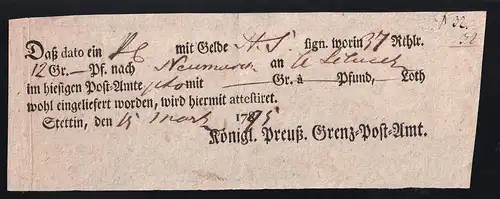 Daß dato ein mit Gelde H. S. sign. worin 37 Rthlr.
12 Gr. — Pf. nach Neumarck an
im hiesigen Post-Amte mit — Gr. à — Pfund, — Loth
wohl eingeliefert worden, wird hiermit attestiret.
Stettin, den 15 März 1795
Königl. Preuß. Grenz-Post-Amt.